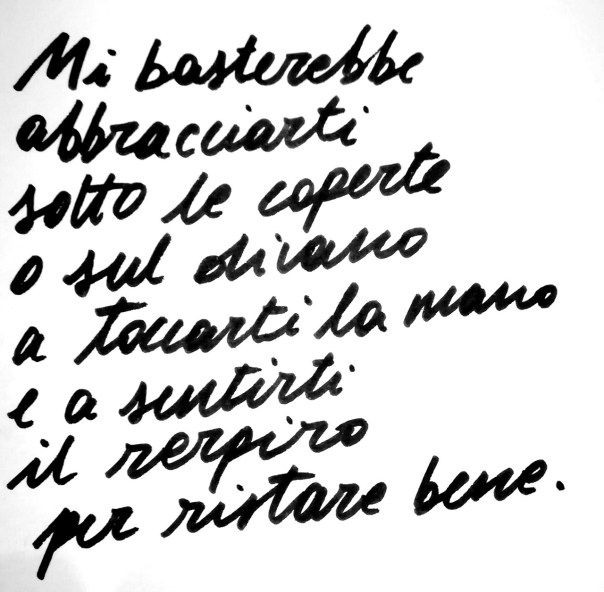 Mi basterebbe
abbracciarti
sotto le coperte
o sul divano
a toccarti la mano
e a sentirti
il respiro
per ristare bene.